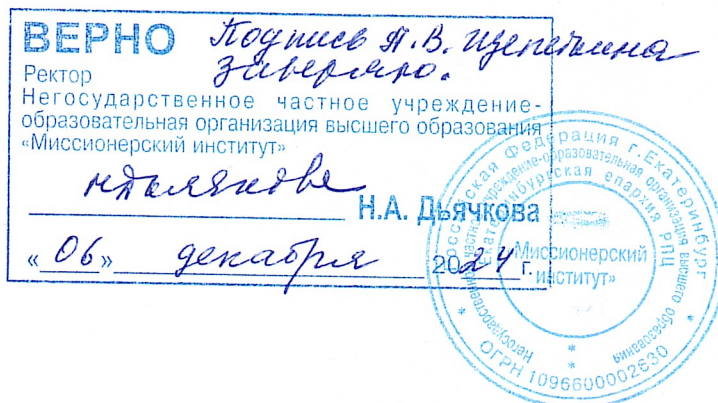 ВЕРНО Подпись А.В. Щепеткина
заверяю.
Ректор
Негосударственное частное учреждение-
образовательная организация высшего образования
«Миссионерский институт»
Н.А. Дьячкова
«06» декабря 2024 г.
Российская Федерация г. Екатеринбург
Негосударственное частное учреждение-образовательная организация высшего образования
Екатеринбургская епархия РПЦ
«Миссионерский
институт»
ОГРН 1096600002630